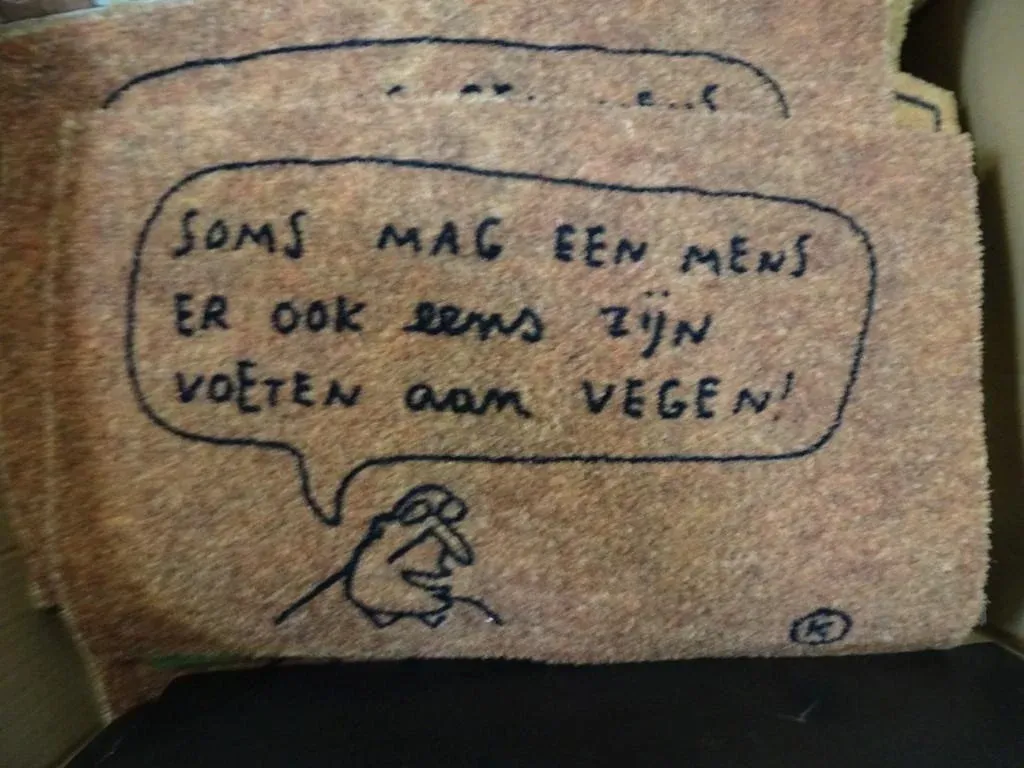 SOMS MAG EEN MENS
ER OOK eens ZIJN
VOETEN aan VEGEN!
K